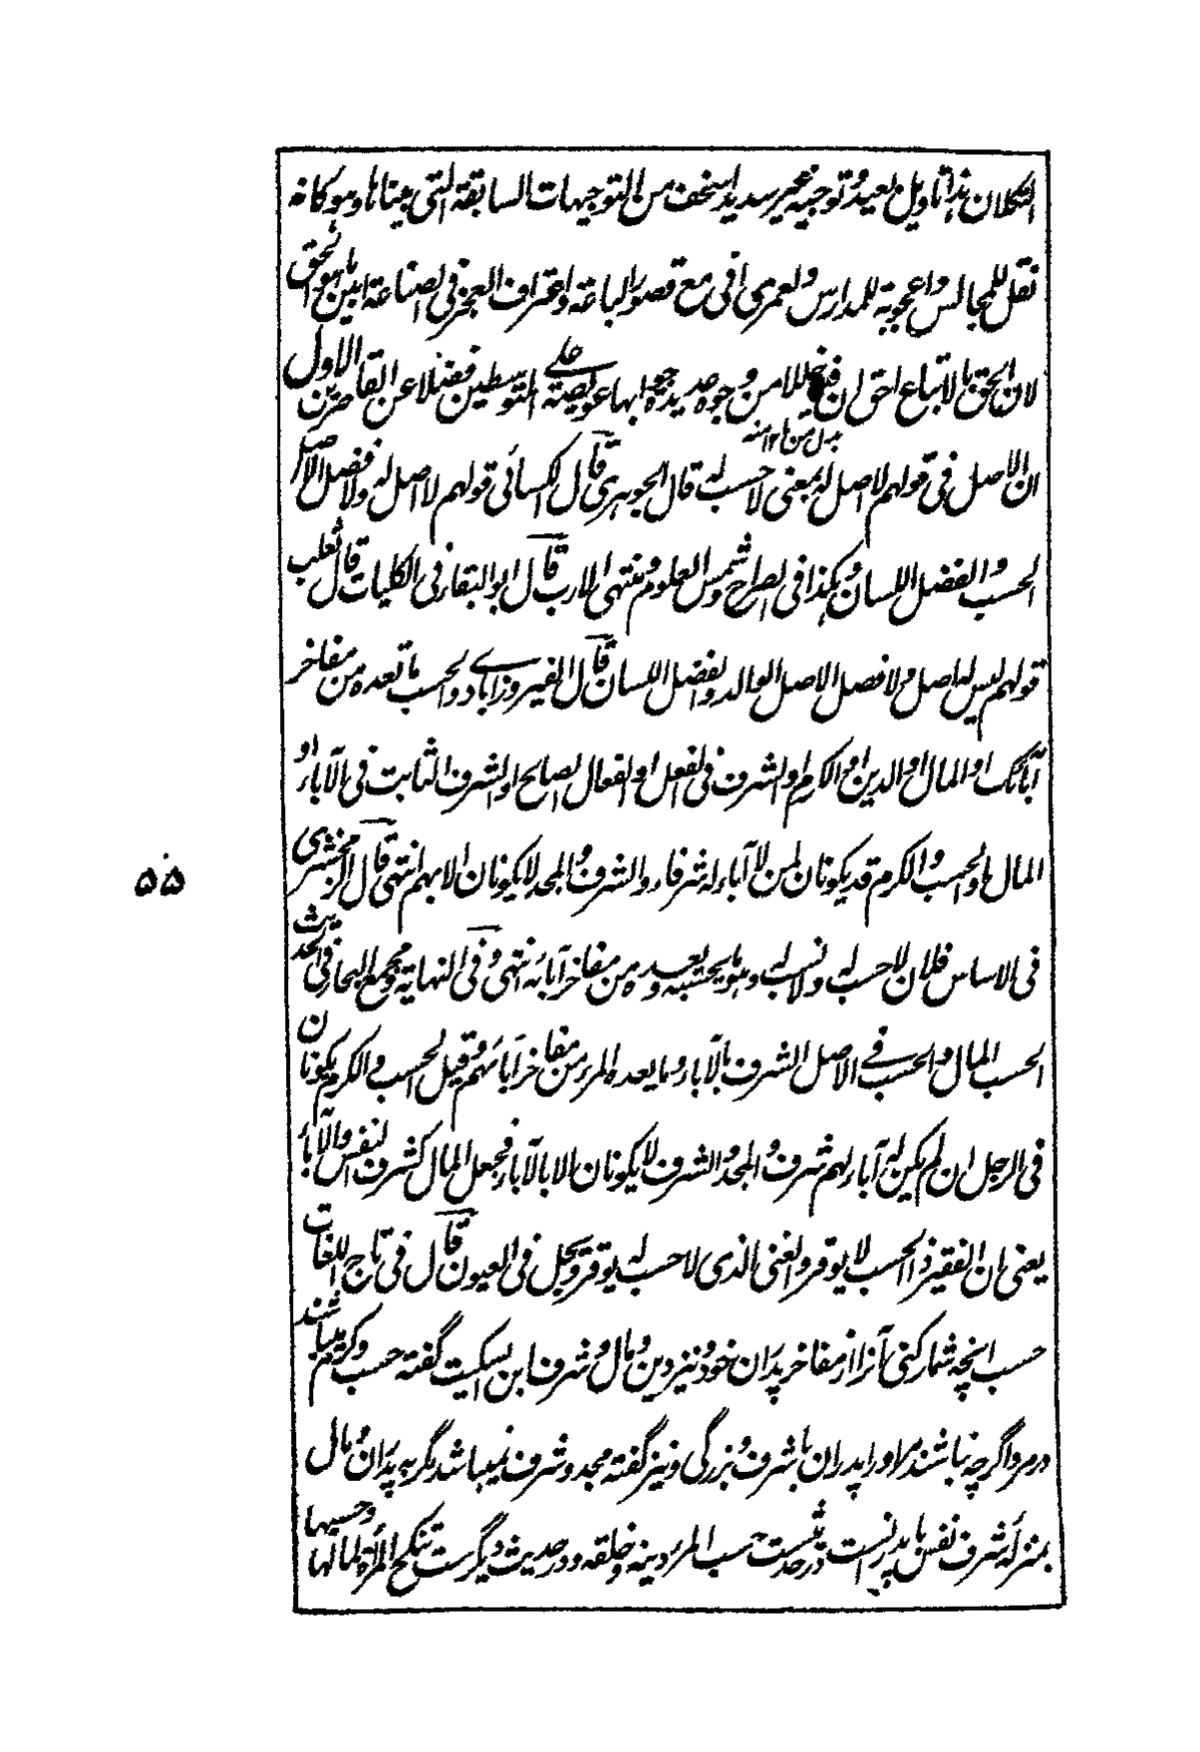 التكلان هذا تاويل بعيد وتوجيه غير سديد اسخف من التوجيهات السابقة التى بيناها وهو كانه
نقل للمجالس واعجوبة للمدارس ولعمرى انى مع قصور الباعة واعتراف العجز فى الصناعة ابين ما هو الحق
لان الحق بالاتباع احق لان فيه من وجوه عديدة جوابها عويصة على المتوسطين فضلا عن القاصرين الاول
ان الاصل فى قولهم لا اصل له بمعنى لا حسب له قال الجوهرى قال الكسائى قولهم لا اصل له ولا فصل الاصل
الحسب والفصل اللسان وهكذا فى الصراح وشمس العلوم ومنتهى الارب قال ابو البقاء فى الكليات قال ثعلب
قولهم ليس له اصل ولا فصل الاصل الوالد والفصل اللسان قال الفيروزابادى والحسب ما تعده من مفاخر
آبائك او المال او الدين او الكرم او الشرف فى الفعل او الفعال الصالح او الشرف الثابت فى الآباء او
المال والحسب والكرم قد يكونان لمن لا آباء له شرفاء والشرف والمجد لا يكونان الا بهم انتهى قال الزمخشرى
فى الاساس فلان لا حسب له ولا نسب له وهو ما يحسبه ويعده من مفاخر آبائه انتهى وفى النهاية ومجمع البحار فى الحديث
الحسب المال والحسب فى الاصل الشرف بالآباء وما يعده المرء من مفاخر آبائهم وقيل الحسب والكرم يكونان
فى الرجل ان لم يكن له آباء لهم شرف والمجد والشرف لا يكونان الا بالآباء فجعل المال كشرف النفس والآباء
يعنى ان الفقير ذا الحسب لا يوقر والغنى الذى لا حسب له يوقر ويجل فى العيون قال فى تاج اللغات
حسب انچه شمار كنى آنرا از مفاخر پدران خود ونيز دين ومال وشرف ابن السكيت گفته حسب وكرم ميباشند
در مرد اگرچه نباشند مر او را پدران با شرف وبزرگى ونيز گفته مجد وشرف نميباشد مگر به پدران ومال
بمنزله شرف نفس يا پدرانست در حديثست حسب المرء دينه وخلقه ودر حديث ديگرست تنكح المرأة لمالها وحسبها
۵۵